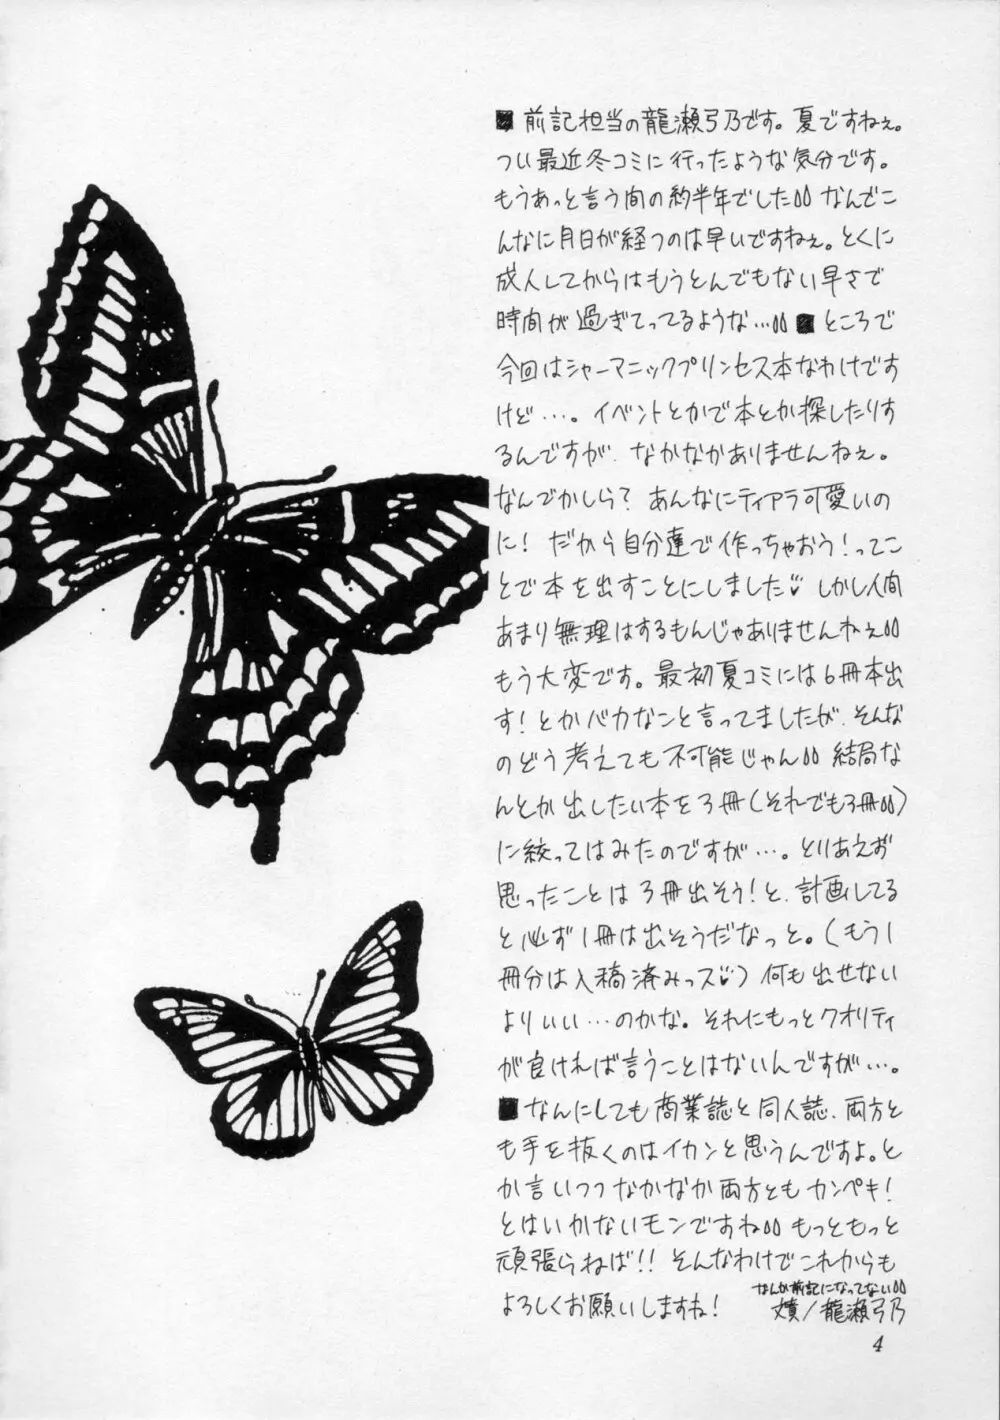 ■前記担当の龍瀬弓乃です。夏ですねぇ。
つい最近冬コミに行ったような気分です。
もうあっと言う間の約半年でした なんでこ
んなに月日が経つのは早いですねぇ。とくに
成人してからはもうとんでもない早さで
時間が過ぎてってるような… ■ところで
今回はシャーマニックプリンセス本なわけです
けど…。イベントとかで本とか探したりす
るんですが、なかなかありませんねぇ。
なんでかしら？ あんなにティアラ可愛いの
に！ だから自分達で作っちゃおう！ってこ
とで本を出すことにしました♡ しかし人間
あまり無理はするもんじゃありませんねぇ
もう大変です。最初夏コミには6冊本出
す！とかバカなこと言ってましたが、そんな
のどう考えても不可能じゃん 結局な
んとか出したい本を3冊(それでも3冊)
に絞ってはみたのですが…。とりあえず
思ったことは3冊出そう！と、計画してる
と必ず1冊は出そうだなっと。(もう1
冊分は入稿済みっス♡) 何も出せない
よりいい…のかな。それにもっとクオリティ
が良ければ言うことはないんですが…。
■なんにしても商業誌と同人誌、両方と
も手を抜くのはイカンと思うんですよ。と
か言いつつなかなか両方ともカンペキ！
とはいかないモンですね もっともっと
頑張らねば!! そんなわけでこれからも
よろしくお願いしますね！
なんか前記になってない
/龍瀬弓乃
4